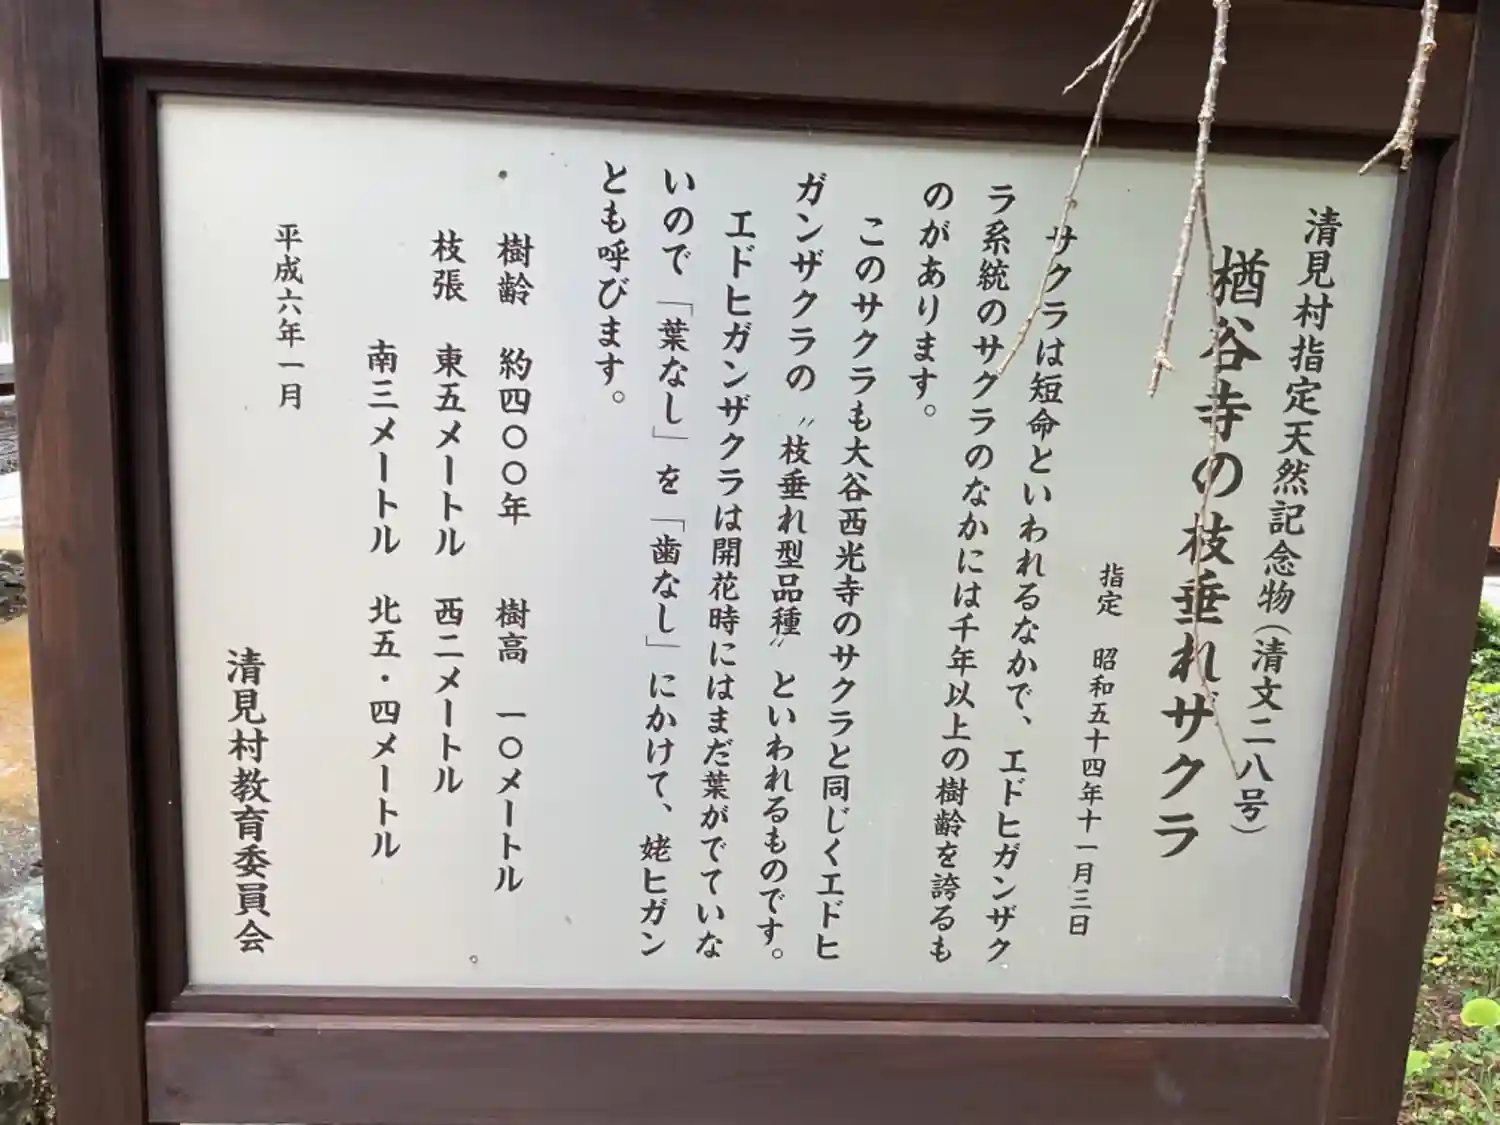 清見村指定天然記念物（清文二八号）
楢谷寺の枝垂れザクラ
指定 昭和五十四年十一月三日
サクラは短命といわれるなかで、エドヒガンザク
ラ系統のサクラのなかには千年以上の樹齢を誇るも
のがあります。
このサクラも大谷西光寺のサクラと同じくエドヒ
ガンザクラの〝枝垂れ型品種〟といわれるものです。
エドヒガンザクラは開花時にはまだ葉がでていな
いので「葉なし」を「歯なし」にかけて、姥ヒガン
とも呼びます。
樹齢 約四〇〇年 樹高 一〇メートル
枝張 東五メートル 西二メートル
南三メートル 北五・四メートル
平成六年一月
清見村教育委員会